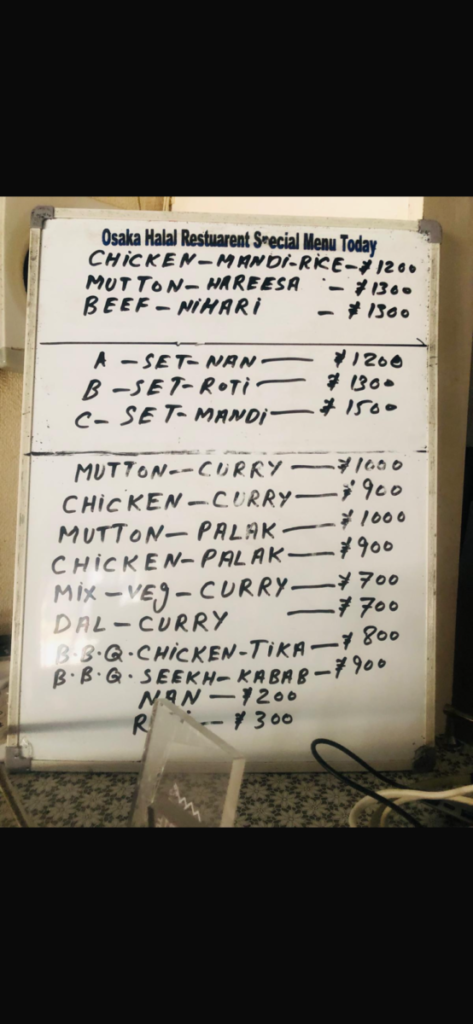 Osaka Halal Restuarent Special Menu Today
CHICKEN-MANDI-RICE-¥1200
MUTTON-HAREESA - ¥1300
BEEF-NIHARI - ¥1300
A-SET-NAN — ¥1200
B-SET-ROTI — ¥1300
C-SET-MANDI — ¥1500
MUTTON-CURRY — ¥1000
CHICKEN-CURRY — ¥900
MUTTON-PALAK — ¥1000
CHICKEN-PALAK — ¥900
MIX-VEg-CURRY — ¥700
DAL-CURRY — ¥700
B.B.Q.CHICKEN-TIKA — ¥800
B.B.Q.SEEKH-KABAB-¥900
NAN — ¥200
¥300